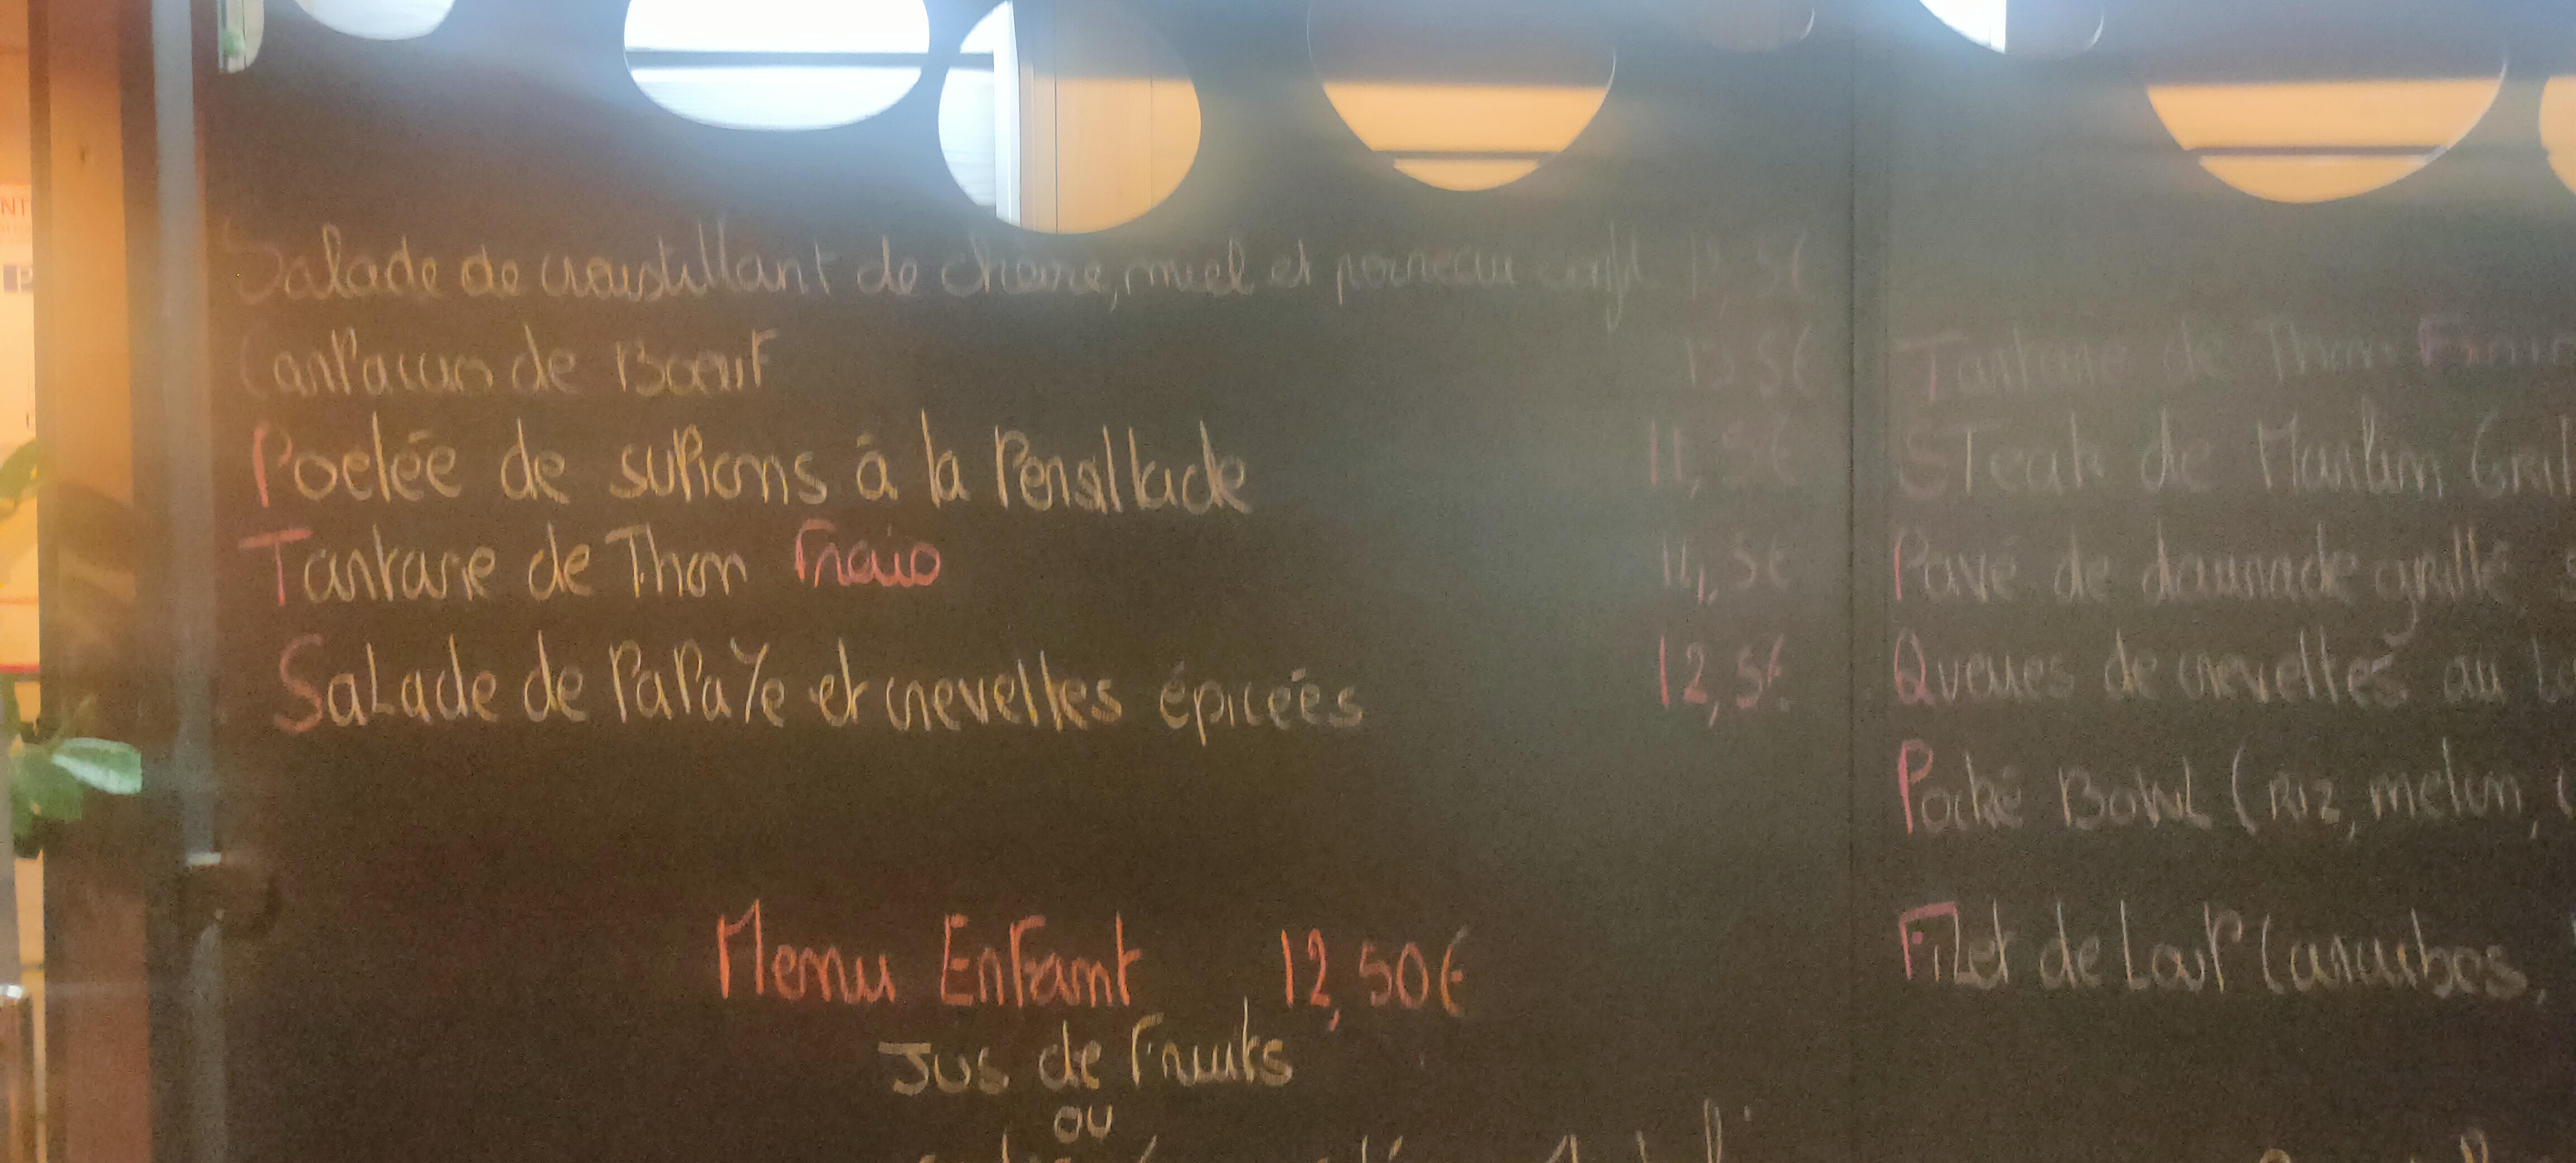 Salade de croustillant de chèvre, miel et poireau confit
Carpaccio de Boeuf 13,5€
Poelée de supions à la Persillade 11,5€
Tartare de Thon Frais 11,5€
Salade de Papaye et crevettes épicées 12,5€
Menu Enfant 12,50€
Jus de Fruits
ou
Tartare de Thon Frais
Steak de Marlin Grill
Pavé de daurade grillé
Queues de crevettes au
Pocké Bowl (Riz, melon,
Filet de Loup Caraïbes,